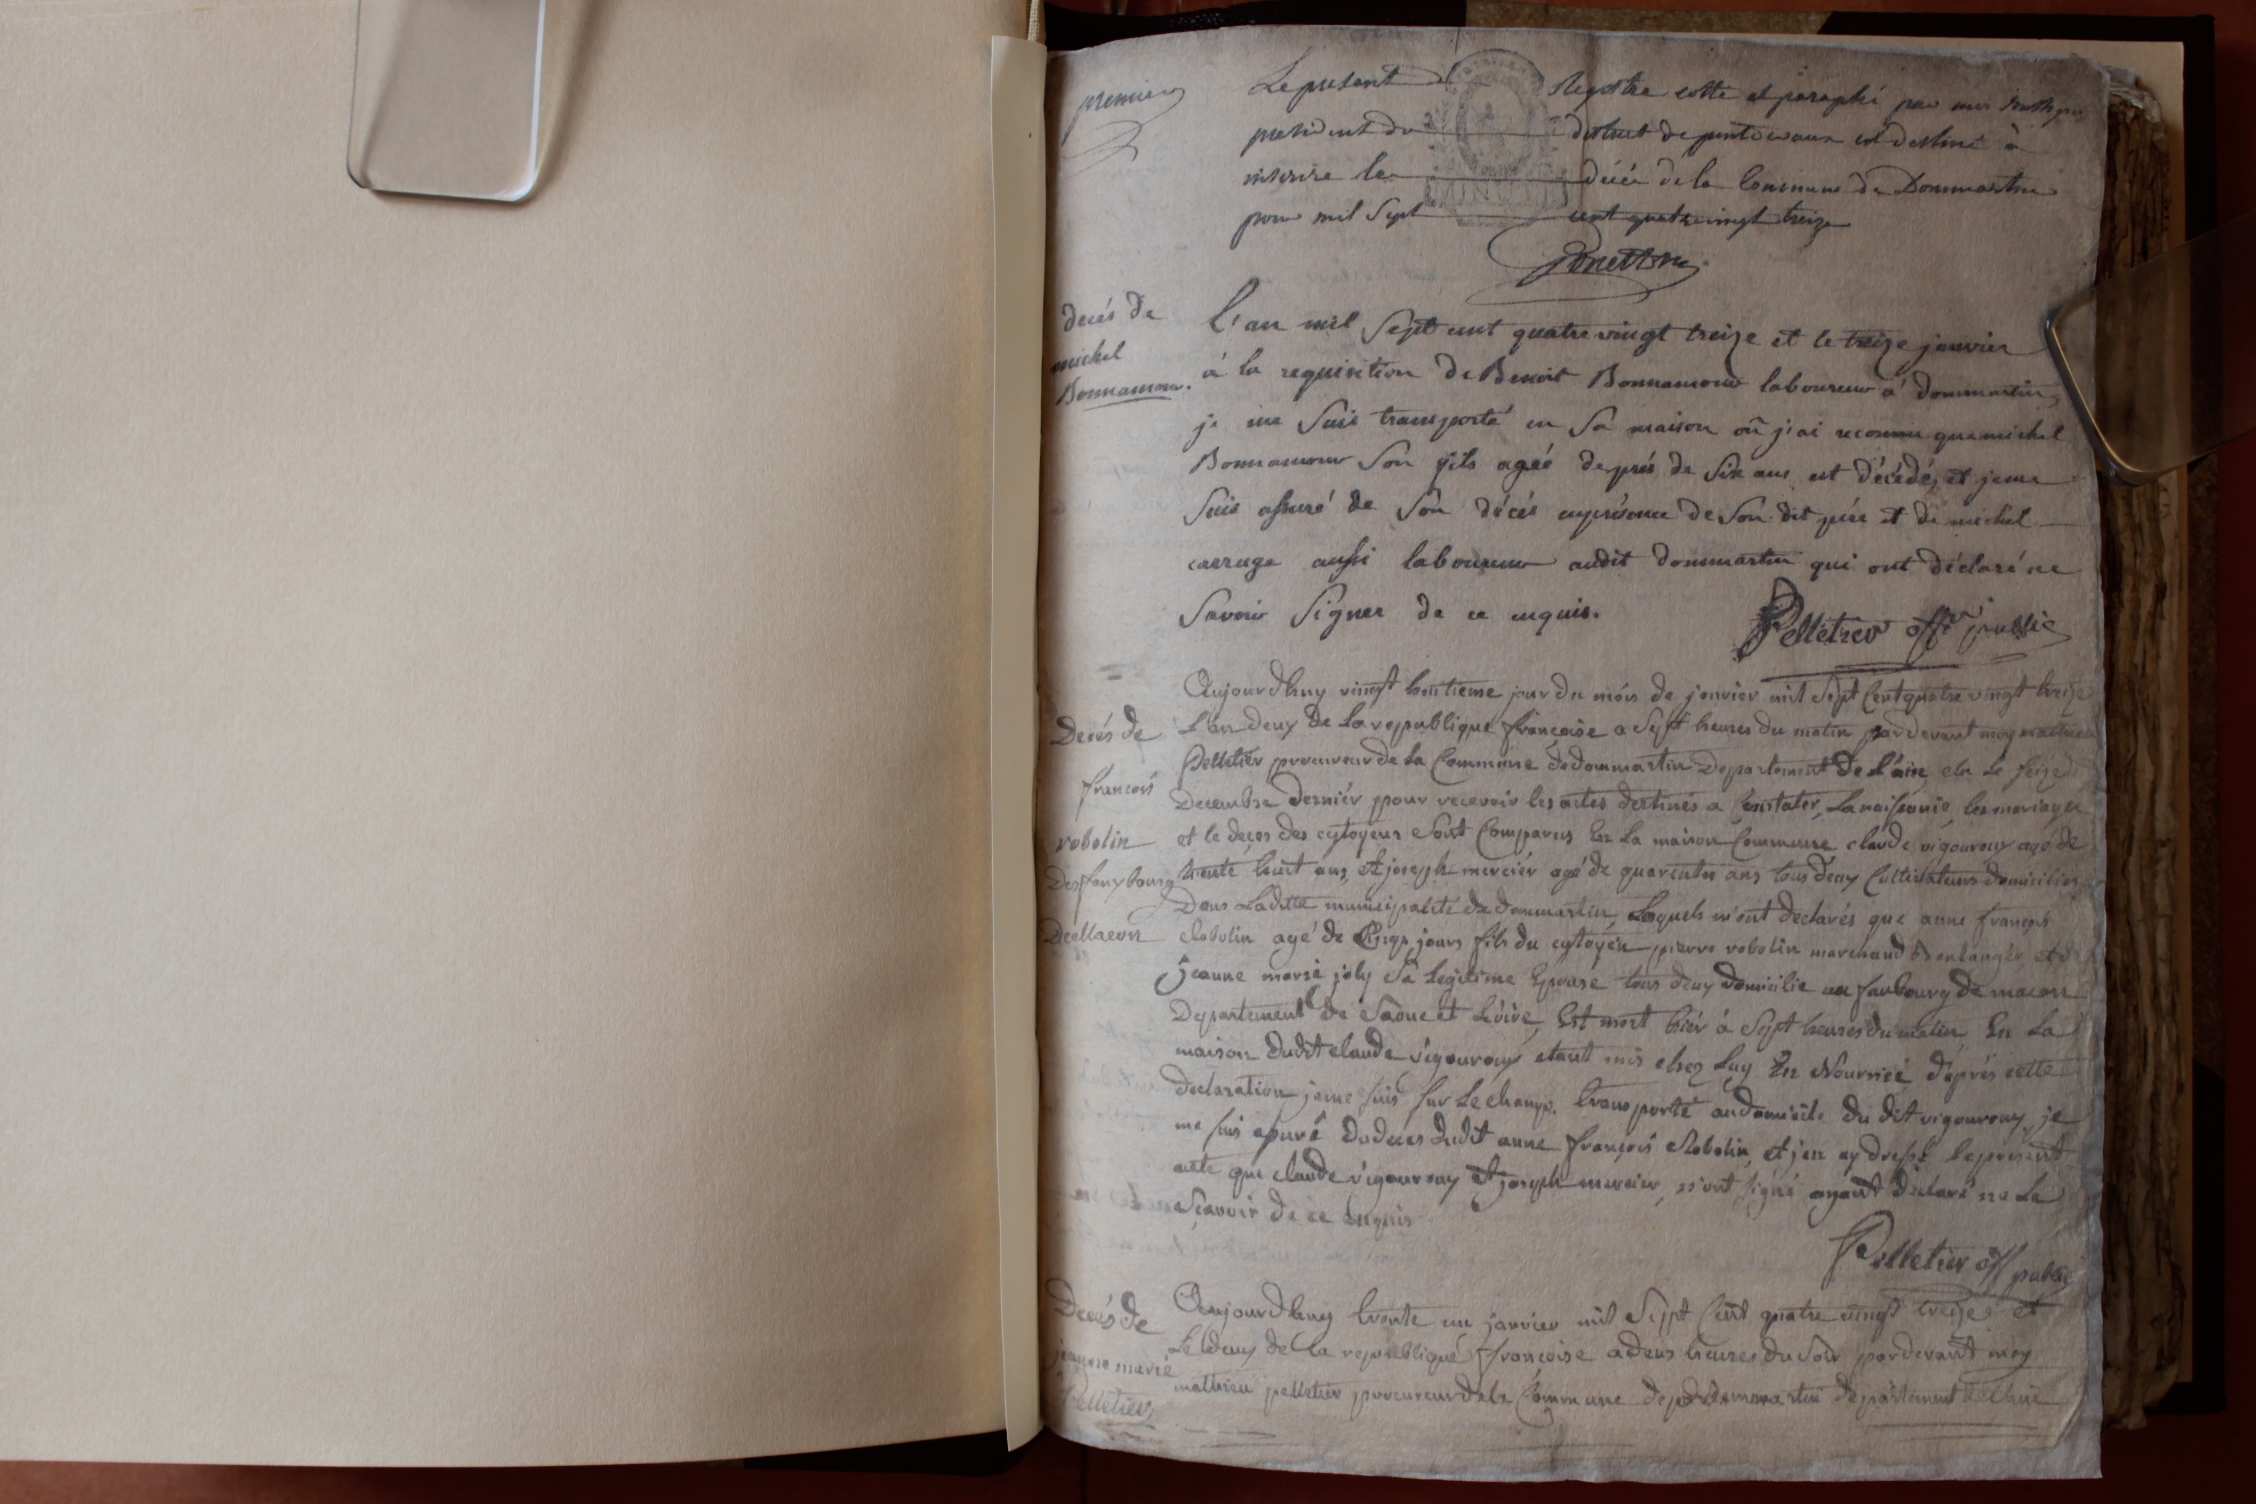 premier
Le present Registre cotté et paraphé par nous
president du district de pontdevaux est destiné à
inscrire les décés de la Commune de Dommartin
pour mil sept cent quatrevingt treize
décés de
michel
Bonnamour.
L'an mil sept cent quatre vingt treize et le treize janvier
à la requisition de Benoit Bonnamour laboureur à dommartin
je me suis transporté en sa maison où j'ai reconnu que michel
Bonnamour son fils agéé de près de six ans est décédé, et je me
suis assuré de son décés en présence de son dit père et de michel
carruge aussi laboureur audit dommartin qui ont déclaré ne
savoir signer de ce enquis.
Pelletier offer public
Decés de
francois
robolin
Des fauxbourg
De Macon
Aujourdhuy vingt huitieme jour du mois de janvier mil sept Cent quatre vingt treize
L'an deux de La republique françoise a sept heures du matin par devant moy mathieu
Pelletier procureur de La Commune de dommartin Departement de l'ain elu Le seize
Decembre dernier pour recevoir les actes destinés a Constater, La naissance, les mariages
et le deces des cytoyens sont Comparus En La maison Commune claude vigouroux agé de
trente huit ans, et joseph mercier agé de quarente ans tous deux Cultivateurs domiciliés
Dans Laditte municipalité de dommartin, Lesquels m'ont declarés que anne françois
Robolin agé de jours fils du cytoyen pierre robolin marchand Boulanger et de
jeanne marie joly sa Legitime Epouse tous deux domicilié au faubourg de macon
Departement de Saone et Loire, Est mort hier à sept heures du matin En La
maison dudit claude vigouroux etant mis chez Luy En Nourrice d'aprés cette
declaration je me suis sur Le champ transporté au domicile du dit vigouroux, je
me suis assuré du deces dudit anne françois Robolin, et j'en ay dressé le present
acte que claude vigouroux et joseph mercier, n'ont signé ayant déclaré ne Le
sçavoir de ce Enquis
Pelletier off public
Decés de
jeanne marie
Pelletier
Aujourdhuy trente un janvier mil sept Cent quatre vingt treize et
Le deux de la republique françoise a deux heures du soir par devant moy
mathieu pelletier procureur de la Commune de dommartin departement de l'ain